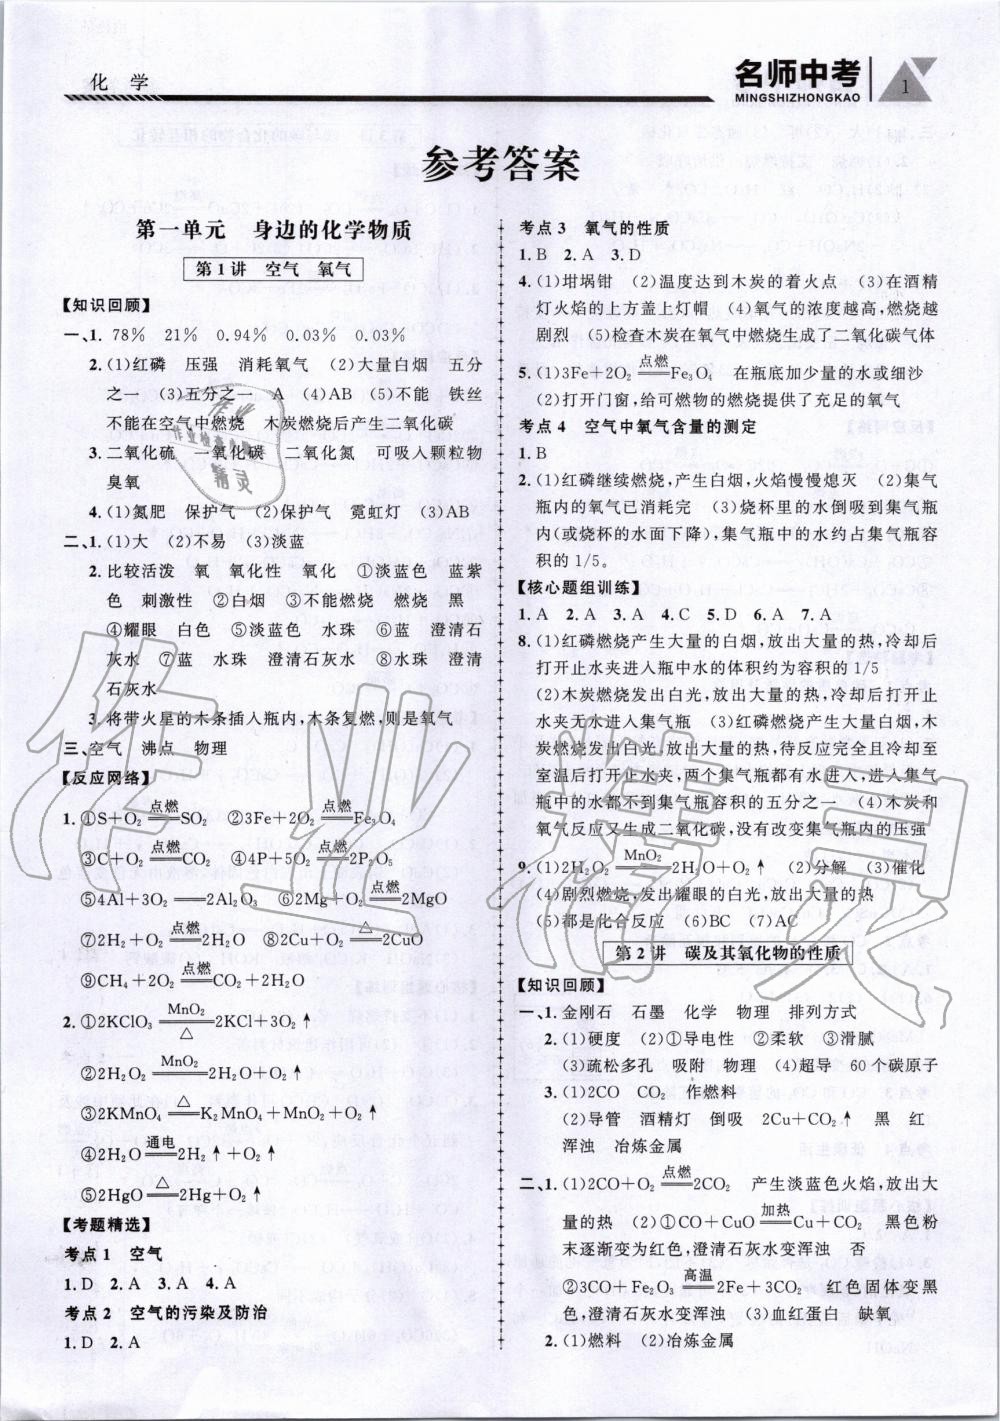 化 学
名师中考
MINGSHIZHONGKAO
1
参考答案
第一单元 身边的化学物质
第1讲 空气 氧气
【知识回顾】
一、1. 78% 21% 0.94% 0.03% 0.03%
2. (1)红磷 压强 消耗氧气 (2)大量白烟 五分
之一 (3)五分之一 A (4)AB (5)不能 铁丝
不能在空气中燃烧 木炭燃烧后产生二氧化碳
3. 二氧化硫 一氧化碳 二氧化氮 可吸入颗粒物
臭氧
4. (1)氮肥 保护气 (2)保护气 霓虹灯 (3)AB
二、1. (1)大 (2)不易 (3)淡蓝
2. 比较活泼 氧 氧化性 氧化 ①淡蓝色 蓝紫
色 刺激性 ②白烟 ③不能燃烧 燃烧 黑
④耀眼 白色 ⑤淡蓝色 水珠 ⑥蓝 澄清石
灰水 ⑦蓝 水珠 澄清石灰水 ⑧水珠 澄清
石灰水
3. 将带火星的木条插入瓶内,木条复燃,则是氧气
三、空气 沸点 物理
【反应网络】
1. ①S+O₂ 点燃══ SO₂ ②3Fe+2O₂ 点燃══ Fe₃O₄
③C+O₂ 点燃══ CO₂ ④4P+5O₂ 点燃══ 2P₂O₅
⑤4Al+3O₂ ══ 2Al₂O₃ ⑥2Mg+O₂ 点燃══ 2MgO
⑦2H₂+O₂ 点燃══ 2H₂O ⑧2Cu+O₂ △══ 2CuO
⑨CH₄+2O₂ 点燃══ CO₂+2H₂O
2. ①2KClO₃ MnO₂══△ 2KCl+3O₂↑
②2H₂O₂ MnO₂══ 2H₂O+O₂↑
③2KMnO₄ △══ K₂MnO₄+MnO₂+O₂↑
④2H₂O 通电══ 2H₂↑+O₂↑
⑤2HgO △══ 2Hg+O₂↑
【考题精选】
考点1 空气
1. D 2. A 3. A 4. A
考点2 空气的污染及防治
1. D 2. A
考点3 氧气的性质
1. B 2. A 3. D
4. (1)坩埚钳 (2)温度达到木炭的着火点 (3)在酒精
灯火焰的上方盖上灯帽 (4)氧气的浓度越高,燃烧越
剧烈 (5)检查木炭在氧气中燃烧生成了二氧化碳气体
5. (1)3Fe+2O₂ 点燃══ Fe₃O₄ 在瓶底加少量的水或细沙
(2)打开门窗,给可燃物的燃烧提供了充足的氧气
考点4 空气中氧气含量的测定
1. B
2. (1)红磷继续燃烧,产生白烟,火焰慢慢熄灭 (2)集气
瓶内的氧气已消耗完 (3)烧杯里的水倒吸到集气瓶
内(或烧杯的水面下降),集气瓶中的水约占集气瓶容
积的1/5。
【核心题组训练】
1. A 2. A 3. A 4. C 5. D 6. A 7. A
8. (1)红磷燃烧产生大量的白烟,放出大量的热,冷却后
打开止水夹进入瓶中水的体积约为容积的1/5
(2)木炭燃烧发出白光,放出大量的热,冷却后打开止
水夹无水进入集气瓶 (3)红磷燃烧产生大量白烟,木
炭燃烧发出白光,放出大量的热,待反应完全且冷却至
室温后打开止水夹,两个集气瓶都有水进入,进入集气
瓶中的水都不到集气瓶容积的五分之一 (4)木炭和
氧气反应又生成二氧化碳,没有改变集气瓶内的压强
9. (1)2H₂O₂ MnO₂══ 2H₂O+O₂↑ (2)分解 (3)催化
(4)剧烈燃烧,发出耀眼的白光,放出大量的热
(5)都是化合反应 (6)BC (7)AC
第2讲 碳及其氧化物的性质
【知识回顾】
一、1. 金刚石 石墨 化学 物理 排列方式
2. (1)硬度 (2)①导电性 ②柔软 ③滑腻
(3)疏松多孔 吸附 物理 (4)超导 60个碳原子
3. (1)2CO CO₂ 作燃料
(2)导管 酒精灯 倒吸 2Cu+CO₂↑ 黑 红
浑浊 冶炼金属
二、1. (1)2CO+O₂ 点燃══ 2CO₂ 产生淡蓝色火焰,放出大
量的热 (2)①CO+CuO 加热══ Cu+CO₂ 黑色粉
末逐渐变为红色,澄清石灰水变浑浊 否
②3CO+Fe₂O₃ 高温══ 2Fe+3CO₂ 红色固体变黑
色,澄清石灰水变浑浊 (3)血红蛋白 缺氧
2. (1)燃料 (2)冶炼金属